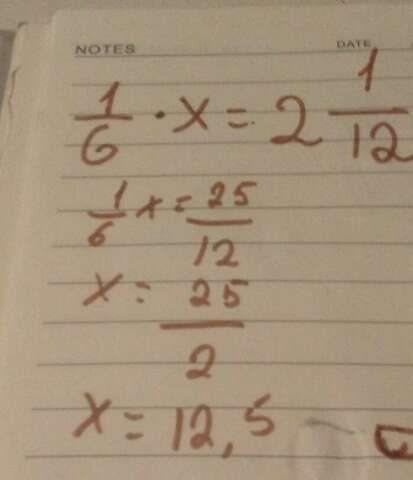 NOTES DATE
1/6 · x = 2 1/12
1/6 x = 25/12
x = 25/2
x = 12,5